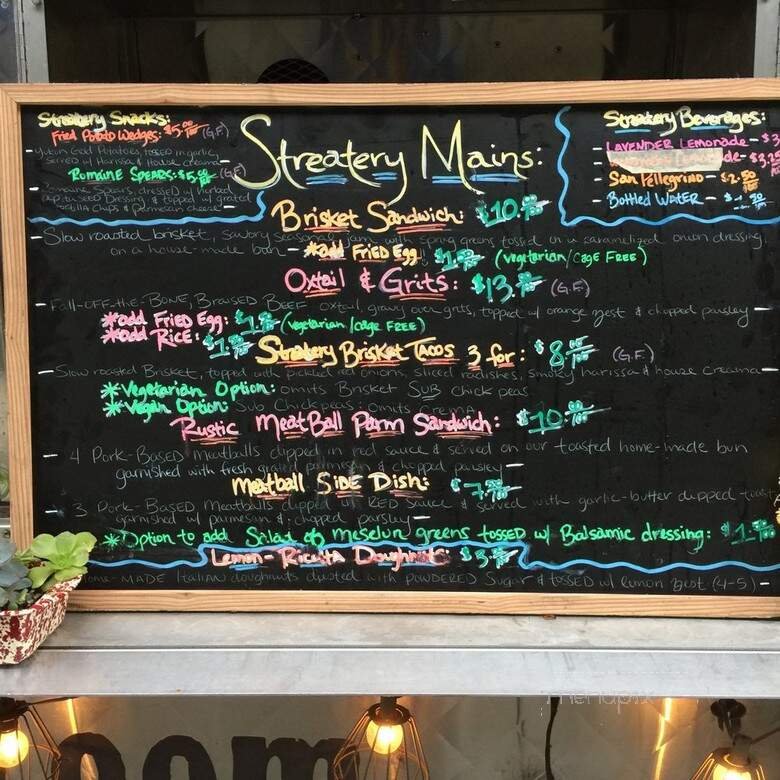 Streatery Snacks:
Fried Potato Wedges: $5.00 (G.F.)
Gold Potatoes, tossed in garlic,
served w/ Harissa & House creama
Romaine Spears: $5.00 (G.F.)
Romaine Spears, dressed w/
Seed Dressing, & topped w/ grated
Tortilla Chips & Parmesan Cheese
Streatery Mains:
Streatery Beverages:
- LAVENDER Lemonade - $3
- San Pellegrino - $2.50
- Bottled Water -
Brisket Sandwich: $10.00
- Slow roasted brisket, savory seasonal jam, with spring greens tossed in a caramelized onion dressing,
on a house-made bun - *add Fried Egg (vegetarian/cage FREE)
Oxtail & Grits: $13. (G.F.)
- Fall-off-the-BONE, Braised Beef oxtail, gravy over grits, topped w/ orange zest & chopped parsley -
*add Fried Egg: (vegetarian/cage FREE)
*add Rice:
Streatery Brisket Tacos 3 for: $8. (G.F.)
- Slow roasted Brisket, topped with pickled red onions, sliced radishes, smoky harissa & house creama
*Vegetarian Option: omits Brisket Sub chick peas
*Vegan Option: Sub Chickpeas: omits
Rustic MeatBall Parm Sandwich: $10.00
- 4 Pork-Based meatballs dipped in red sauce & served on our toasted home-made bun
garnished with fresh grated parmesan & chopped parsley -
Meatball SIDE Dish: $7.
- 3 Pork-Based Meatballs dipped in RED SAUCE & served with garlic-butter dipped
garnished w/ parmesan & chopped parsley -
*Option to add Salad of mesclun greens tossed w/ Balsamic dressing: $1.
Lemon-Ricotta Doughnuts: $3.
Home-MADE Italian doughnuts dusted with POWDERED Sugar & tossed w/ lemon zest (4-5) -